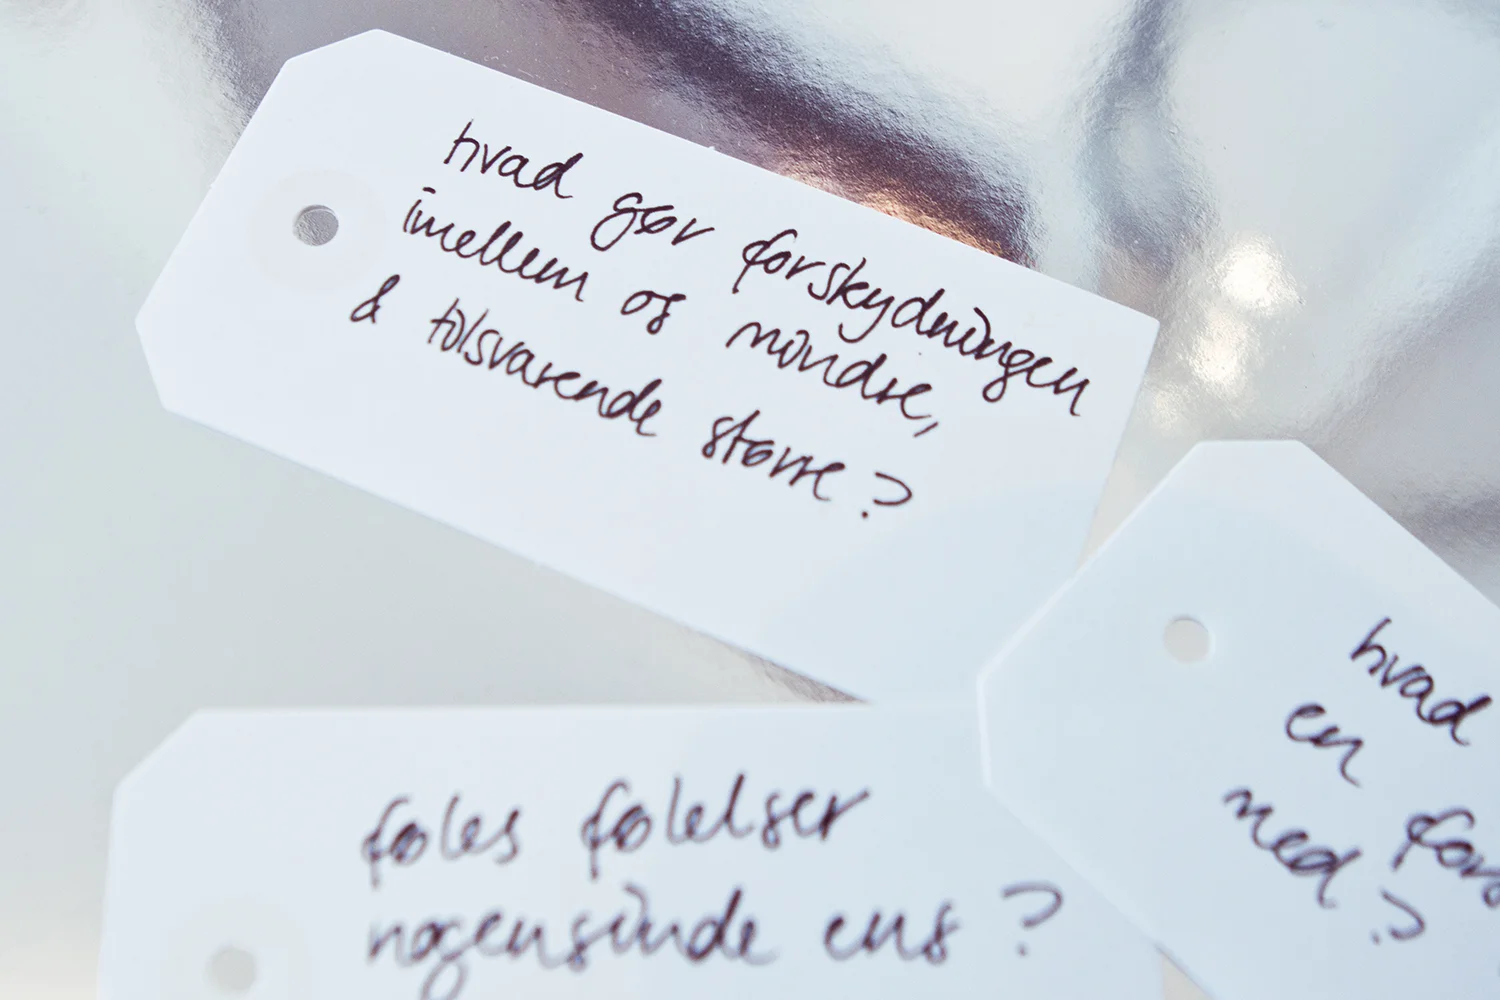 hvad gør forskydningen
imellem os mindre,
& tilsvarende større?
føles følelser
nogensinde ens?
hvad
en
med?